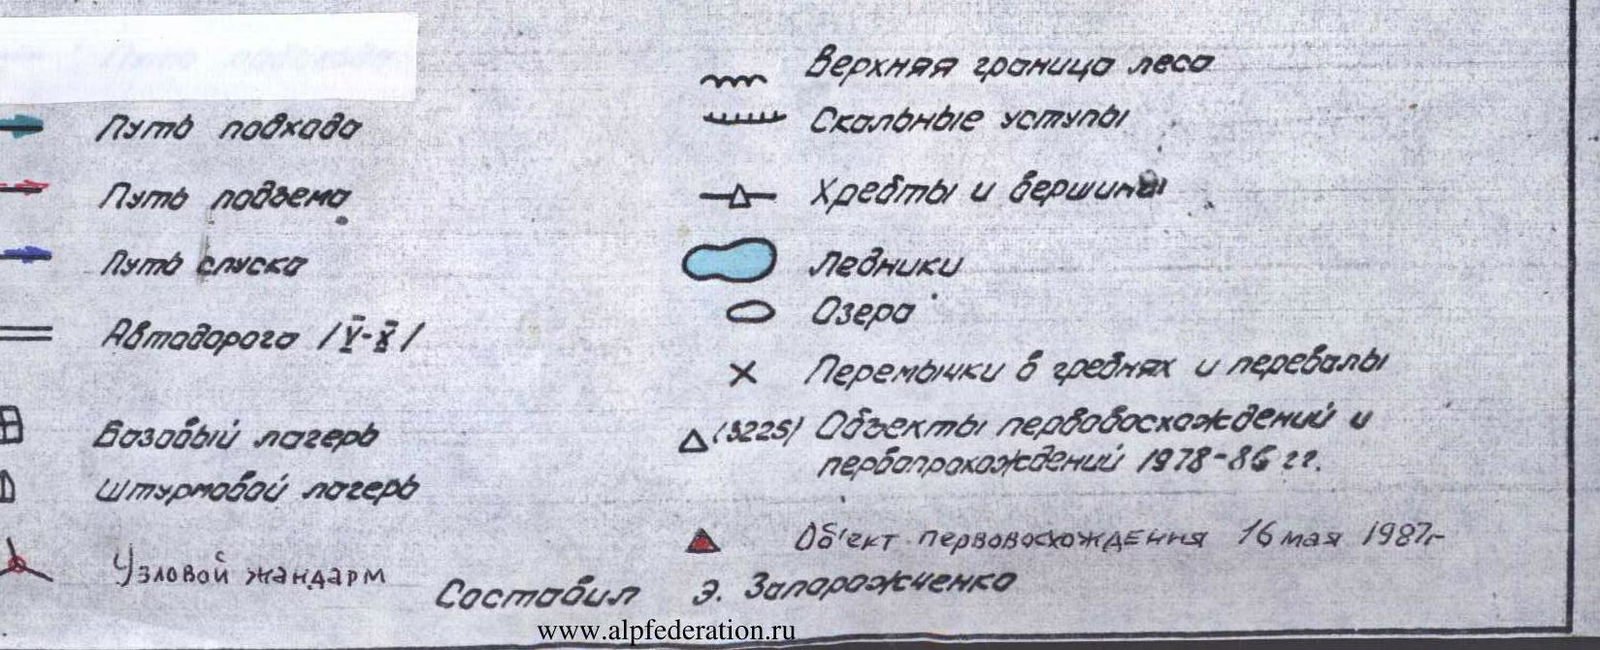 Путь подхода
Путь подъема
Путь спуска
Автодорога /V-X/
Базовый лагерь
Штурмовой лагерь
Узловой жандарм
Верхняя граница леса
Скальные уступы
Хребты и вершины
Ледники
Озера
Перемычки в гребнях и перевалы
(3225) Объекты первовосхождений и
первопрохождений 1978-86 гг.
Об'ект первовосхождения 16 мая 1987г
Составил Э. Запорожченко
www.alpfederation.ru